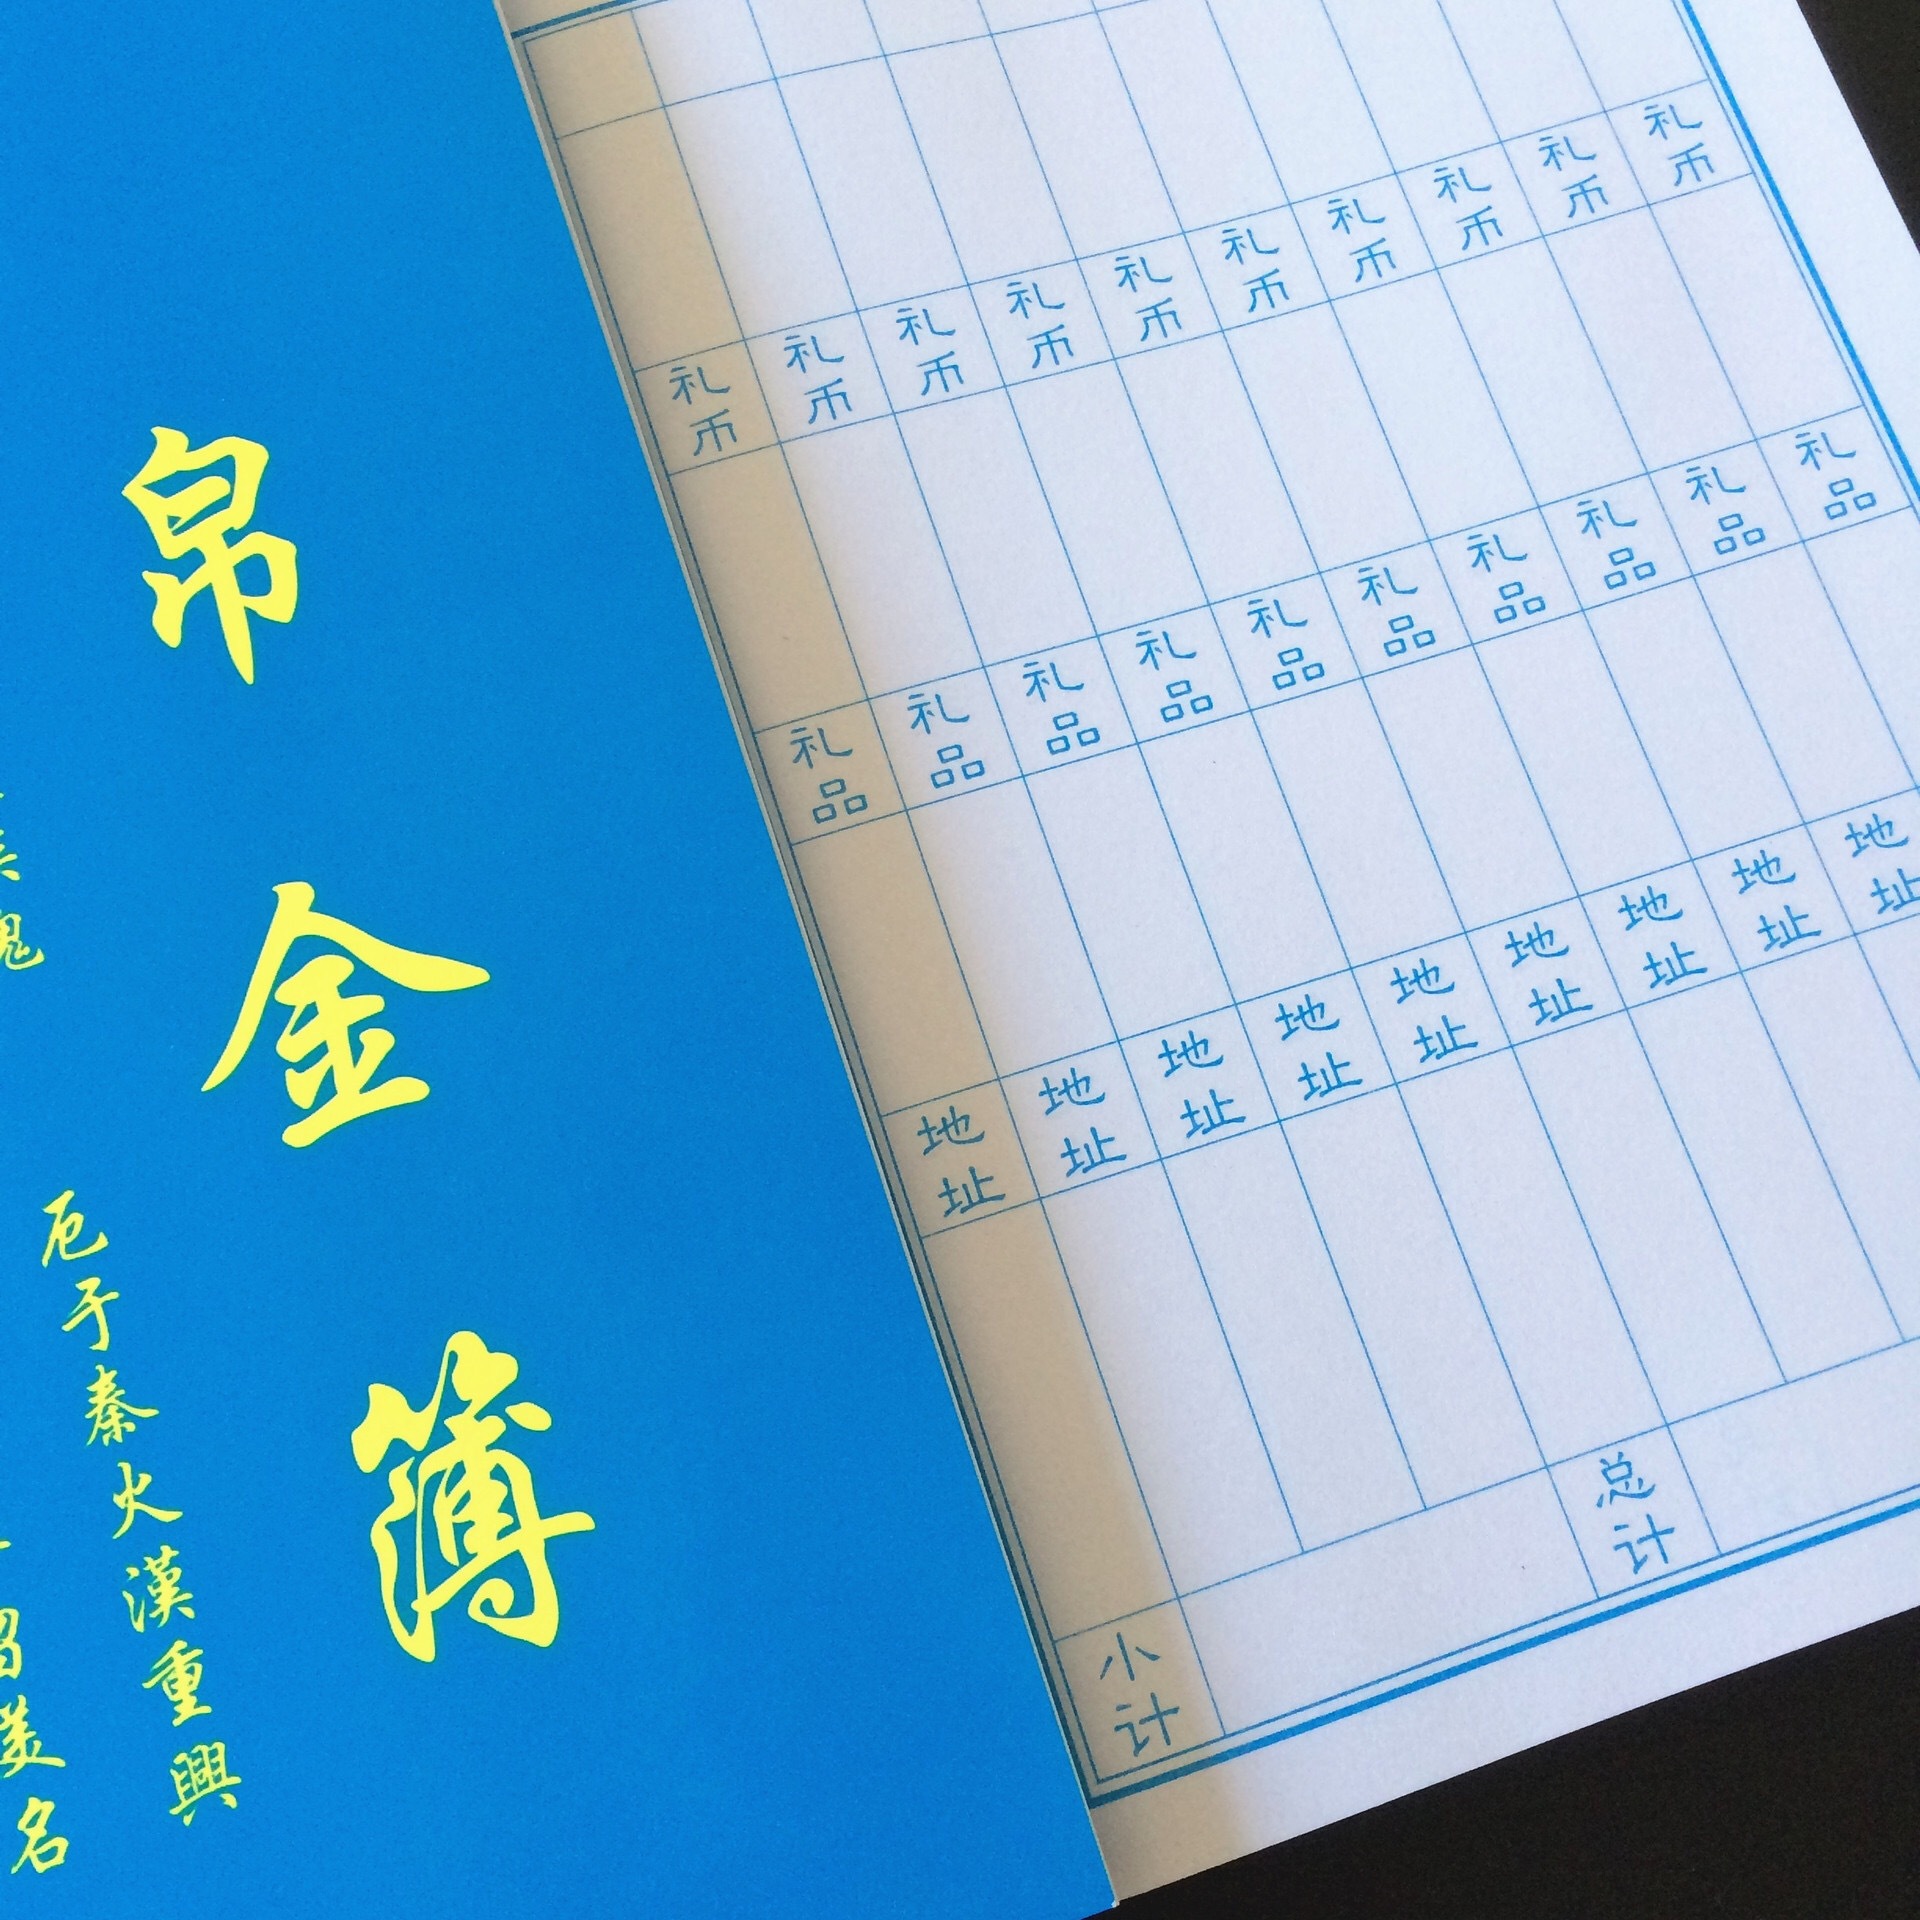 帛金簿
厄于秦火漢重興
美名
礼币 礼币 礼币 礼币 礼币 礼币 礼币 礼币 礼币 礼币
礼品 礼品 礼品 礼品 礼品 礼品 礼品 礼品 礼品 礼品
地址 地址 地址 地址 地址 地址 地址 地址 地址
小计
总计